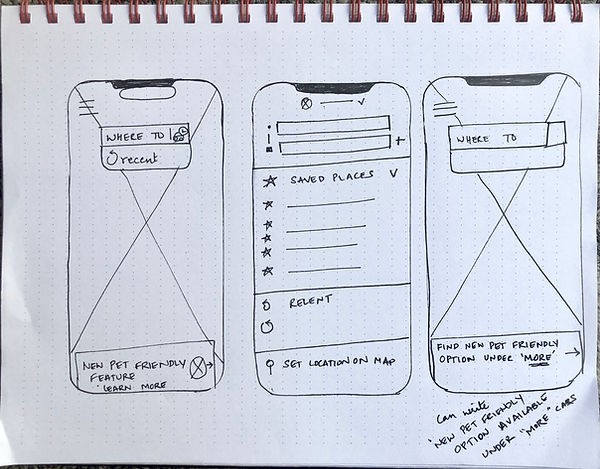 WHERE TO
recent
NEW PET FRIENDLY
FEATURE
LEARN MORE
SAVED PLACES
RELENT
SET LOCATION ON MAP
WHERE TO
FIND NEW PET FRIENDLY
OPTION UNDER 'MORE'
can write
'NEW PET FRIENDLY
OPTION AVAILABLE
UNDER "MORE" CARS